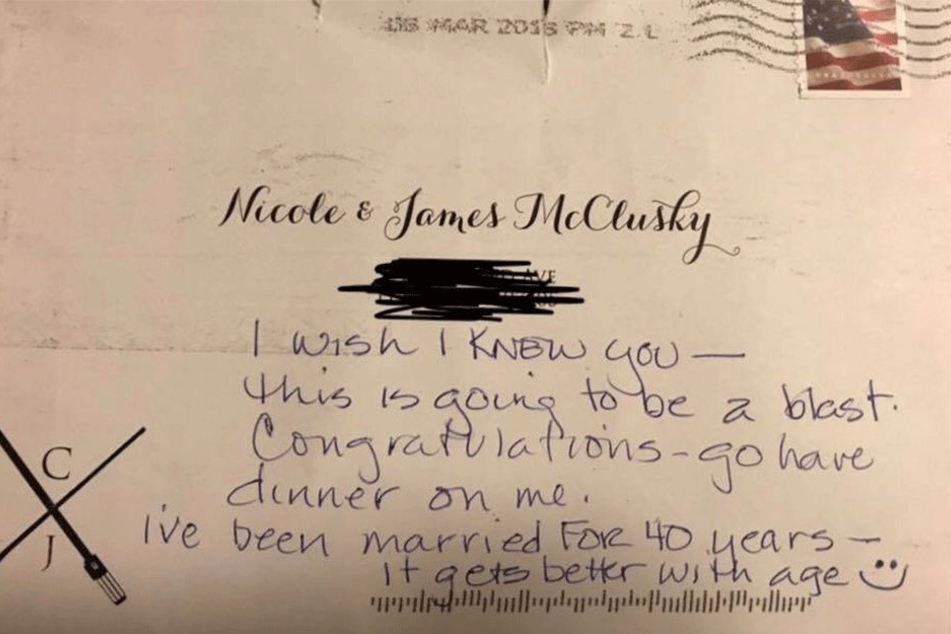 MAR PM
Nicole & James McClusky
AVE
I wish I KNEW you —
this is going to be a blast.
Congratulations - go have
dinner on me.
I've been married FOR 40 years —
it gets better with age
C
J